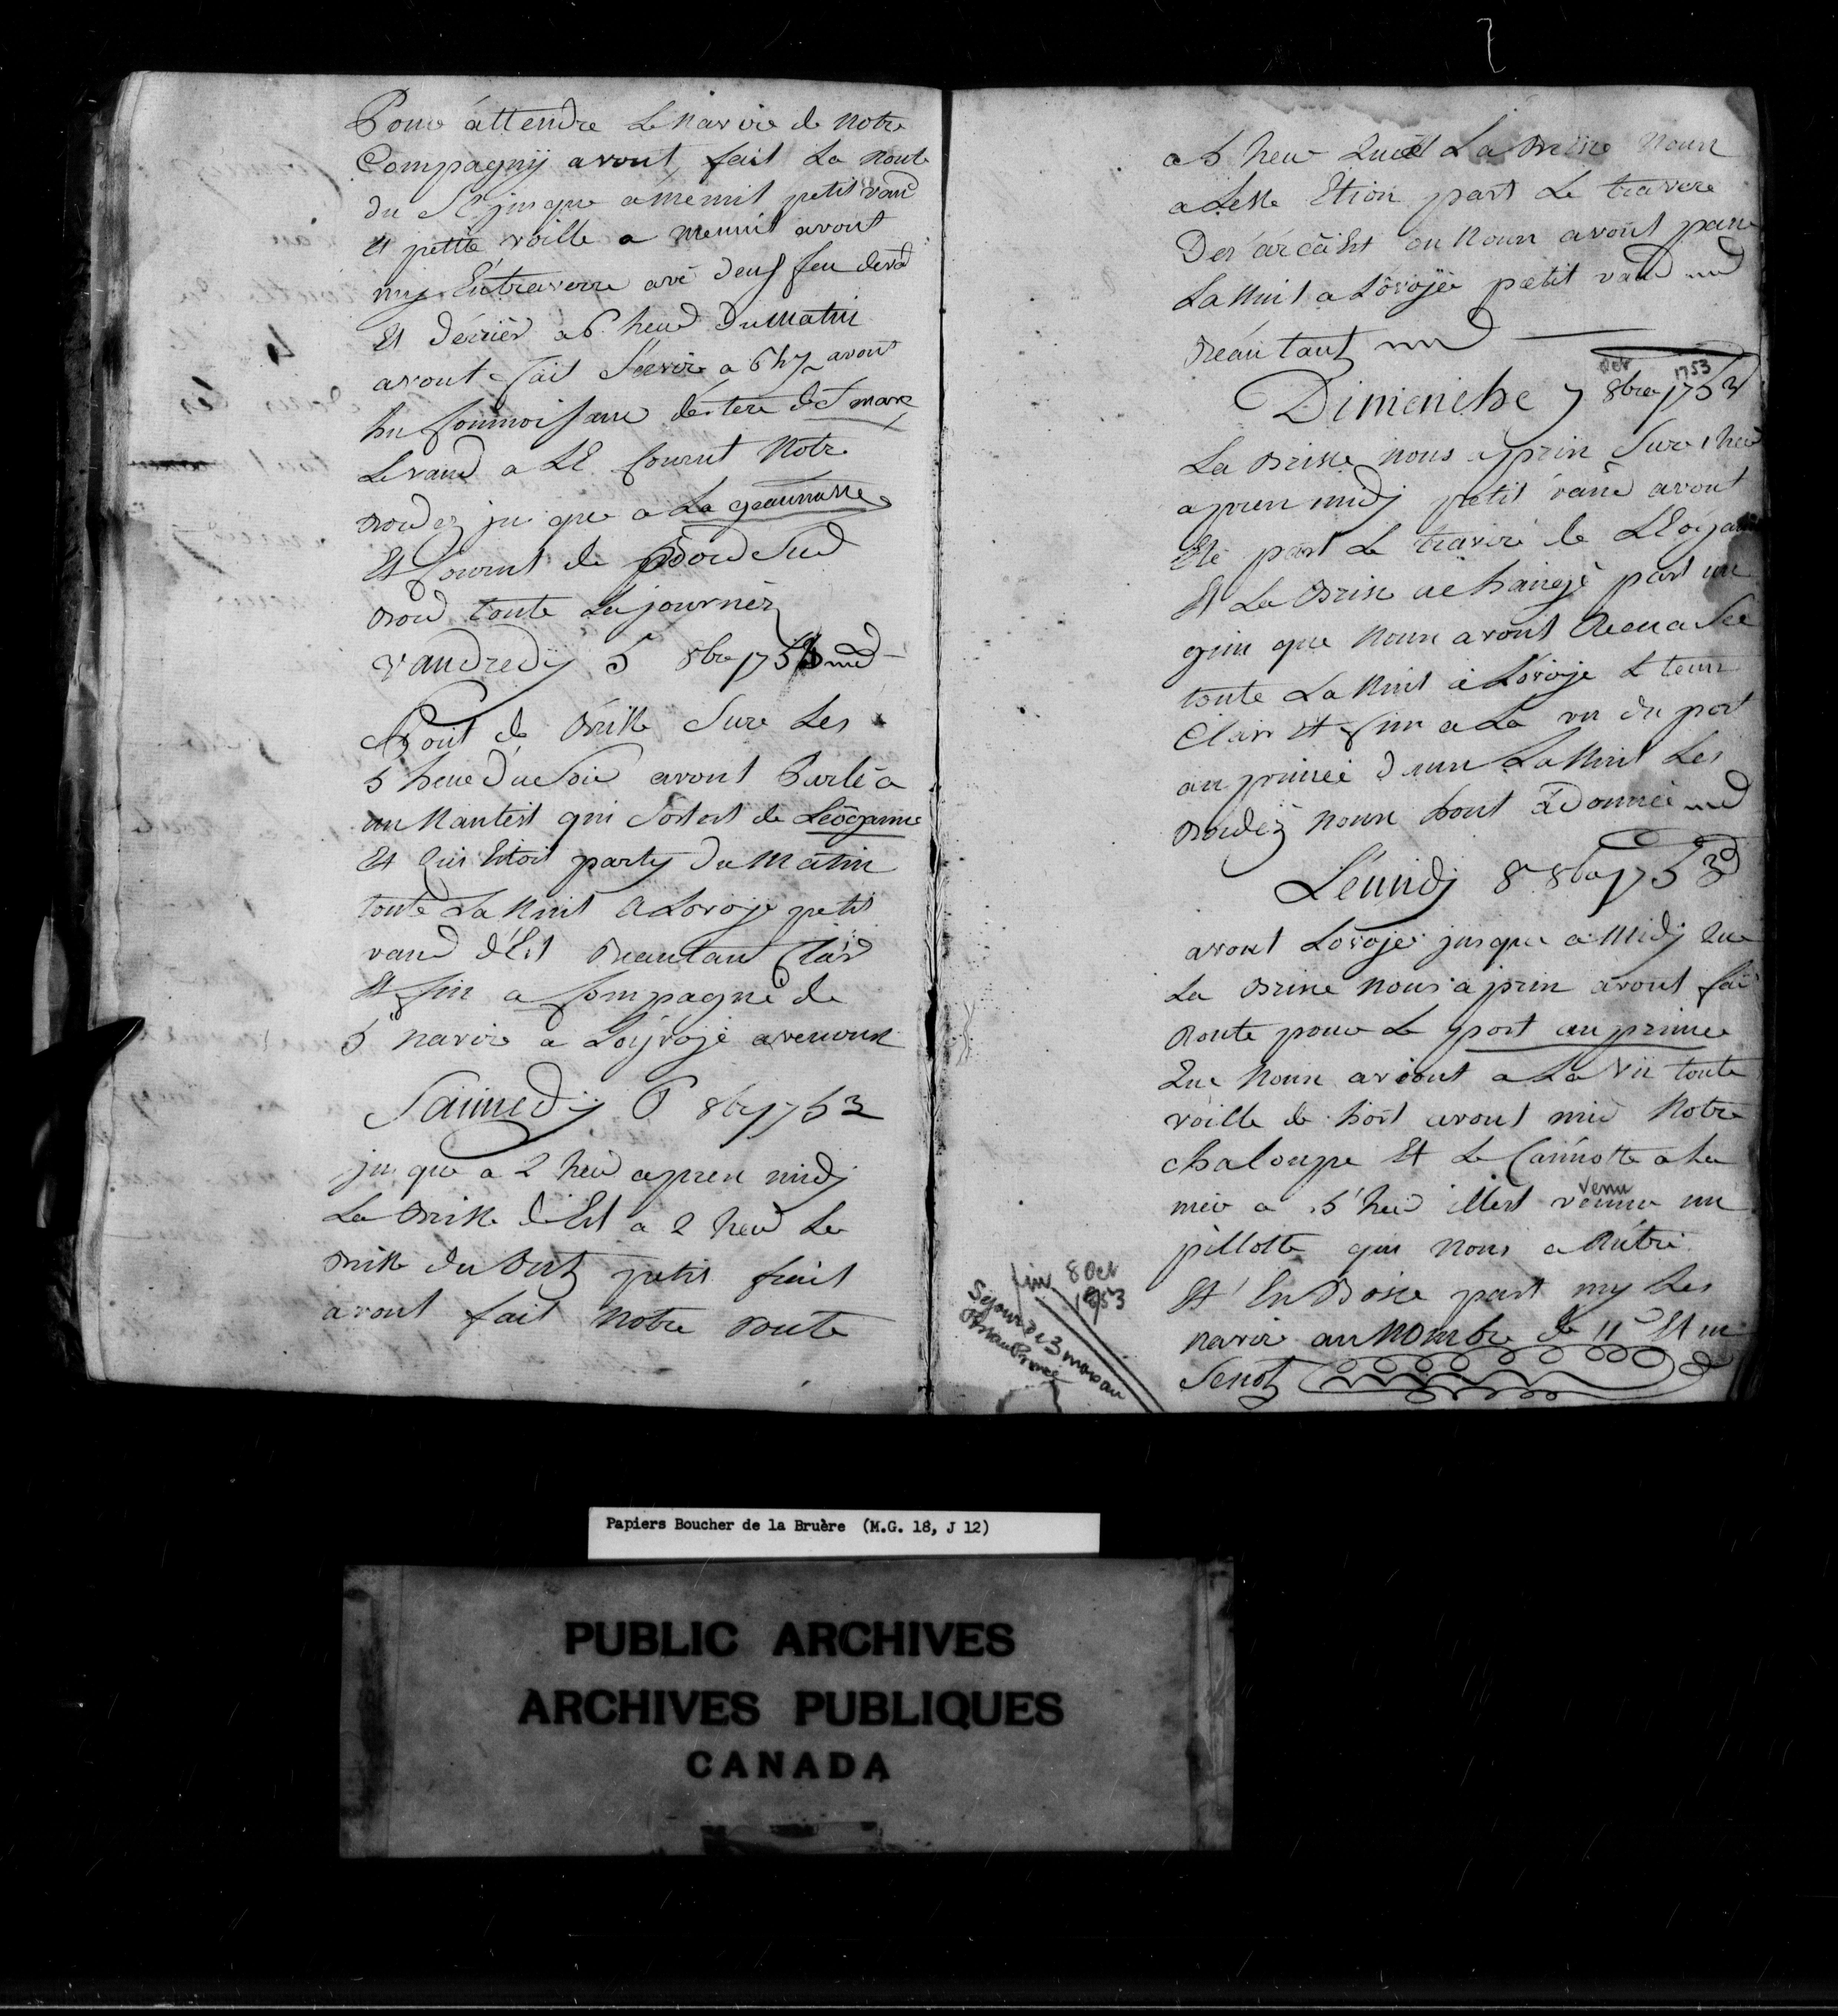 Pour áttendre Le Navire de Notre
Compagnÿ avont fait La Route
du S O jusque a menuit petit vand
Et petite voille a menuit avont
my Entraverre avé deuf feu devd
Et dériér a 6 heud Du Matin
avont fait Servir a 6 h ½ avont
hu Connoisance de tere de St marc
Levand a LE Courut Notre
Bordez jusque a La geaunasve
Et Couru de Bord Sud
Bord toute La journéz
Vandredÿ 5 8bre 1753
Point de Brisse Sure Les
5 heure Du Soir avont Parlé a
un Nantest qui Sortoit de Leôganne
Et qui Etoit party Du Matin
toute La Nuit a Lovoje petit
vand d'Est Beautau Clair
Et fin a Compagné de
5 navire a Loÿvoje
Saimedÿ 6 8bre 1753
jusque a 2 heud apren midj
La Brisse d'Est a 2 heud La
Brisse du petit frait
avont fait Notre Route
a 5 heur Que La Brisse Noun
a Lesse Etion part Le travere
Des arcâhs ou Noun avont passe
La Nuit a Lôvojéé petit vand
Beautaut
oct 1753
Dimenche 7 8bre 1753
La Brisse nous a prin Sure 1 heu
apren midj petit vand avont
Eté part Le traverè de LEogane
Et La Brise a Changé part un
grin que Noun avont
toute La Nuit a Lovoje L teun
Clair Et fin a La vu du port
au prinée Dunn La Nuit Les
Bordéz Noun hont àDonnéé
Léundj 8 8bre 1753
avont Lovojér jusque a Midj Que
La Brise Nous a prin avont fai
Route pour Le port au prince
Que Noun aviont a La Vü toute
voille de hort avont mid Notre
chaloupe Et Le Cannotte a La
mér a 5 heud illest vennu un
venu
pillotte qui Nous a Antré
Et En Bosse part my Les
navire au Nombre de 11 Et un
Senot
fin 8 Oct
1753
Sejour de 3 mois au
Port au Prince
Papiers Boucher de la Bruère (M.G. 18, J 12)
PUBLIC ARCHIVES
ARCHIVES PUBLIQUES
CANADA